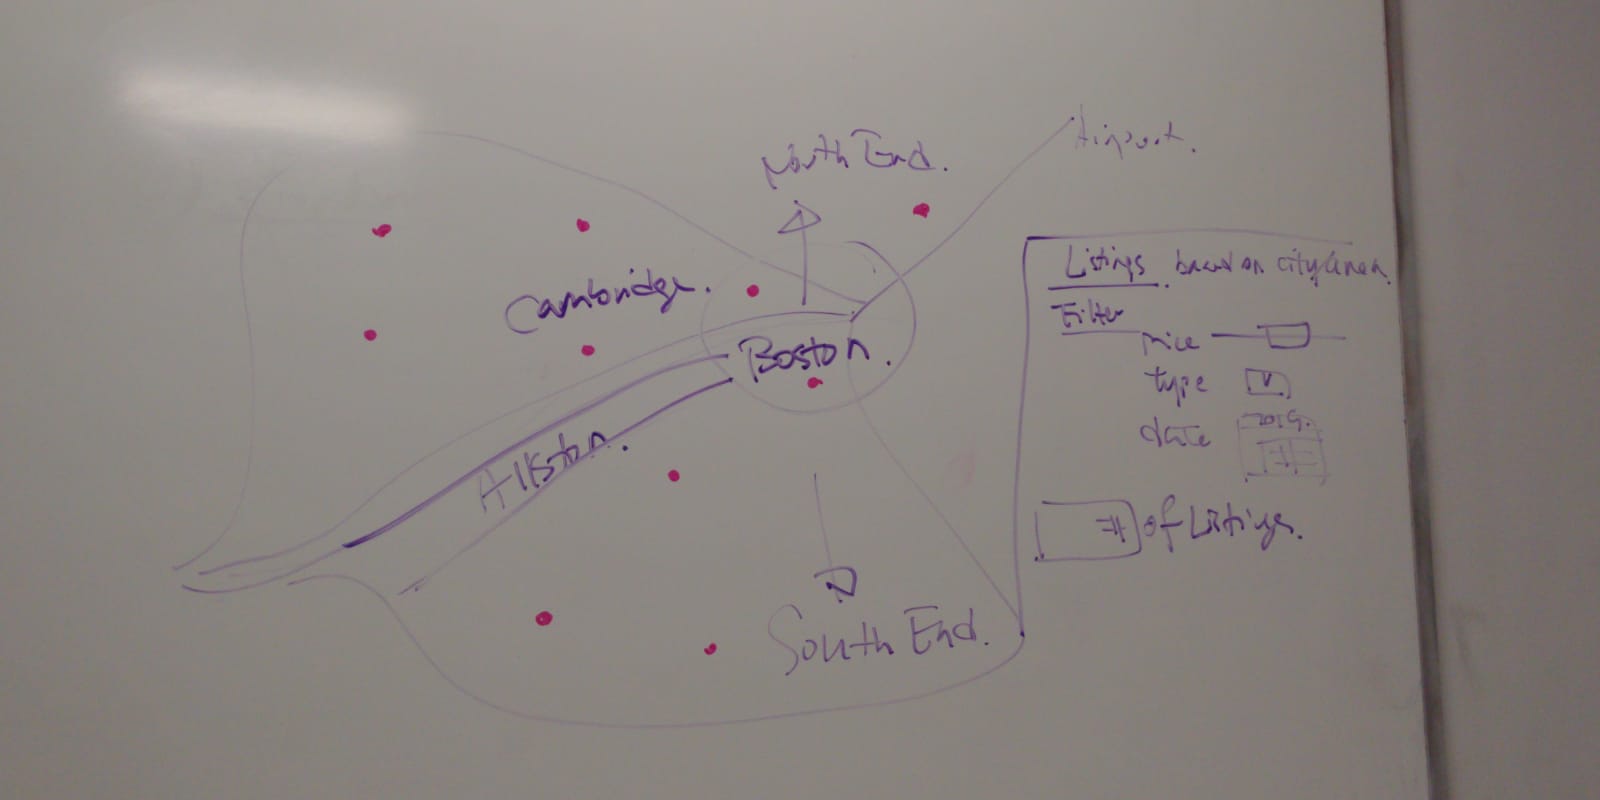 North End.
Airport.
Cambridge.
Boston.
Allston.
South End.
Listings. based on city/area.
Filter
price
type
date 2019.
# of Listings.